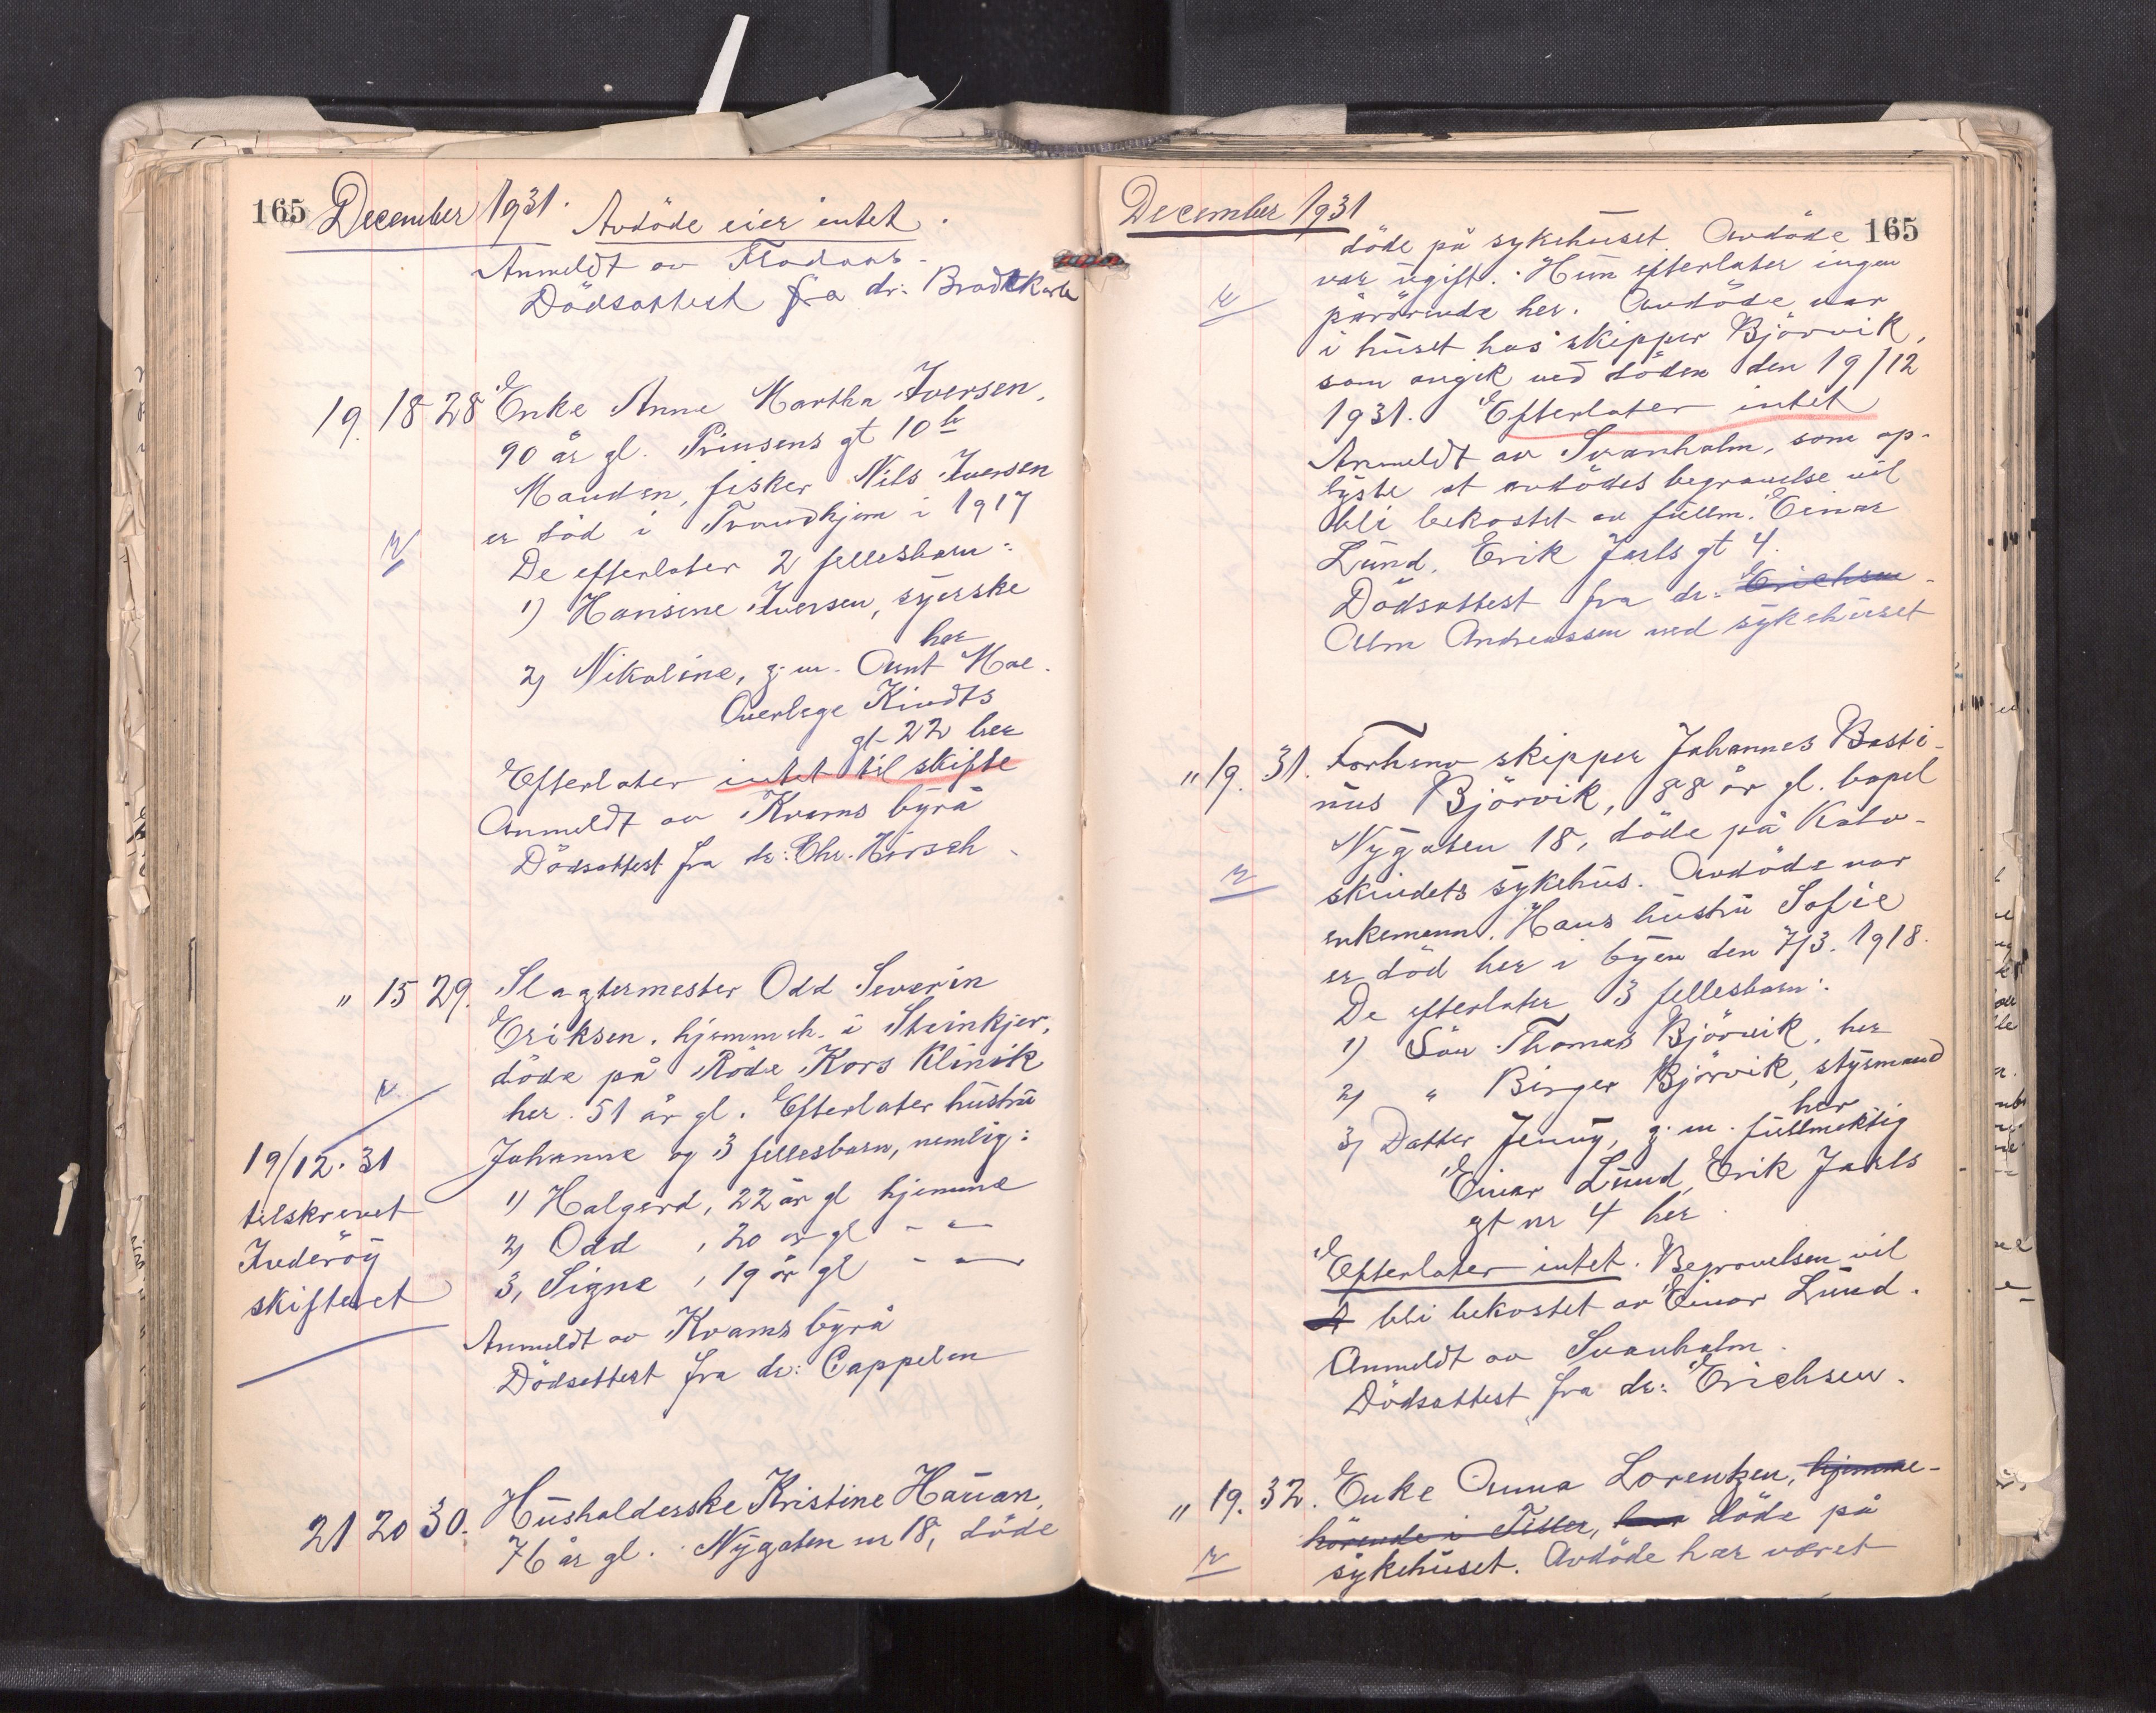 165 December 1931.
Avdöde eier intet.
Anmeldt av Flodaas.
Dödsattest fra dr:
19. 18 28 Enke Anne Martha Iversen,
90 år gl. Prinsens gt 10 b
Manden, fisker Nils Iversen
er död i Trondhjem i 1917
De efterlater 2 fellesbarn:
1) Hansine Iversen, syerske
her
2) Nikoline, g. m. Arnt Moe.
Overlege Kindts
gt 22 her
Efterlater intet til skifte
Anmeldt av Krams byrå
Dödsattest fra dr: Chr. Hirsch.
" 15 29. Slagtermester Odd Severin
Eriksen. hjemmeh. i Steinkjer,
döde på Röde Kors Klinik
her. 51 år gl. Efterlater hustru
Johanne og 3 fellesbarn, nemlig:
1) Halgerd, 22 år gl hjemme
2) Odd , 20 år gl - " -
3, Signe , 19 år gl - " -
Anmeldt av Krams byrå
Dödsattest fra dr: Cappelen
19/12.31
tilskrevet
Inderöy
skifteret
21 20 30. Husholderske Kristine Harian,
76 år gl. Nygaten nr 18, döde
December 1931
165
döde på sykehuset. Avdöde
var ugift. Hun efterlater ingen
pårörende her. Avdöde var
i huset hos skipper Björvik,
som avgik ved döden den 19/12
1931. Efterlater intet
Anmeldt av Svanholm, som op-
lyste at avdödes begravelse vil
bli bekostet av fullm. Einar
Lund, Erik Jarls gt 4.
Dödsattest fra dr: Erichsen.
Alm Andreassen ved sykehuset
" 19. 31. Forhenv skipper Johannes Basti-
nus Björvik, 88 år gl. bopel
Nygaten 18, döde på Kalv-
skindets sykehus. Avdöde var
enkemann. Hans hustru Sofie
er död her i byen den 7/3. 1918.
De efterlater 3 fellesbarn:
1) Sön Thomas Björvik, her
2) " Birger Björvik, styrmand
her
3) Datter Jenny, g. m. fullmektig
Einar Lund, Erik Jarls
gt nr 4 her.
Efterlater intet. Begravelsen vil
bli bekostet av Einar Lund.
Anmeldt av Svanholm.
Dödsattest fra dr: Erichsen.
" 19. 32. Enke Anna Lorentzen, hjemme-
hörende i Tiller, her döde på
sykehuset. Avdöde har været